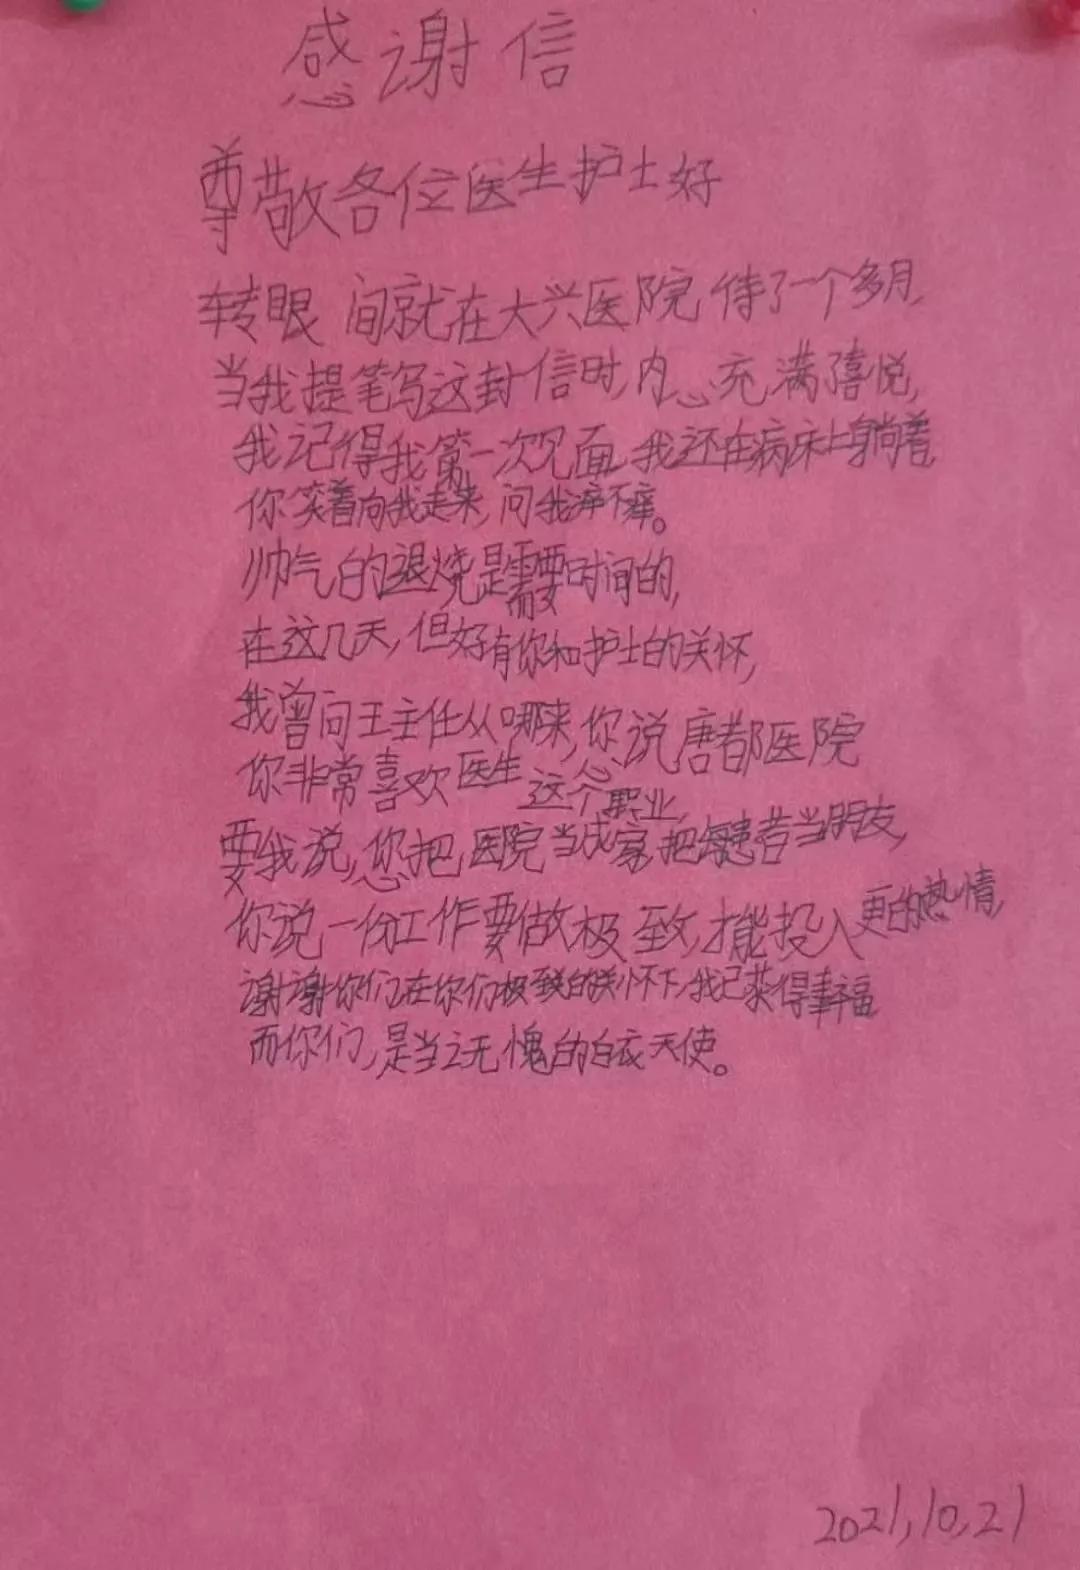 感谢信
尊敬各位医生护士好
转眼间就在大兴医院待了一个多月,
当我提笔写这封信时,内心充满喜悦,
我记得我第一次见面,我还在病床上躺着,
你笑着向我走来,问我痒不痒。
帅气的退烧是需要时间的,
在这几天,但好有你和护士的关怀,
我曾问王主任从哪来,你说唐都医院
你非常喜欢医生这个职业,
要我说,您把医院当成家,把每患者当朋友,
你说一份工作要做极致,才能投入更的热情,
谢谢你们在你们极致的关怀下,我已获得幸福
而你们,是当之无愧的白衣天使。
2021,10,21